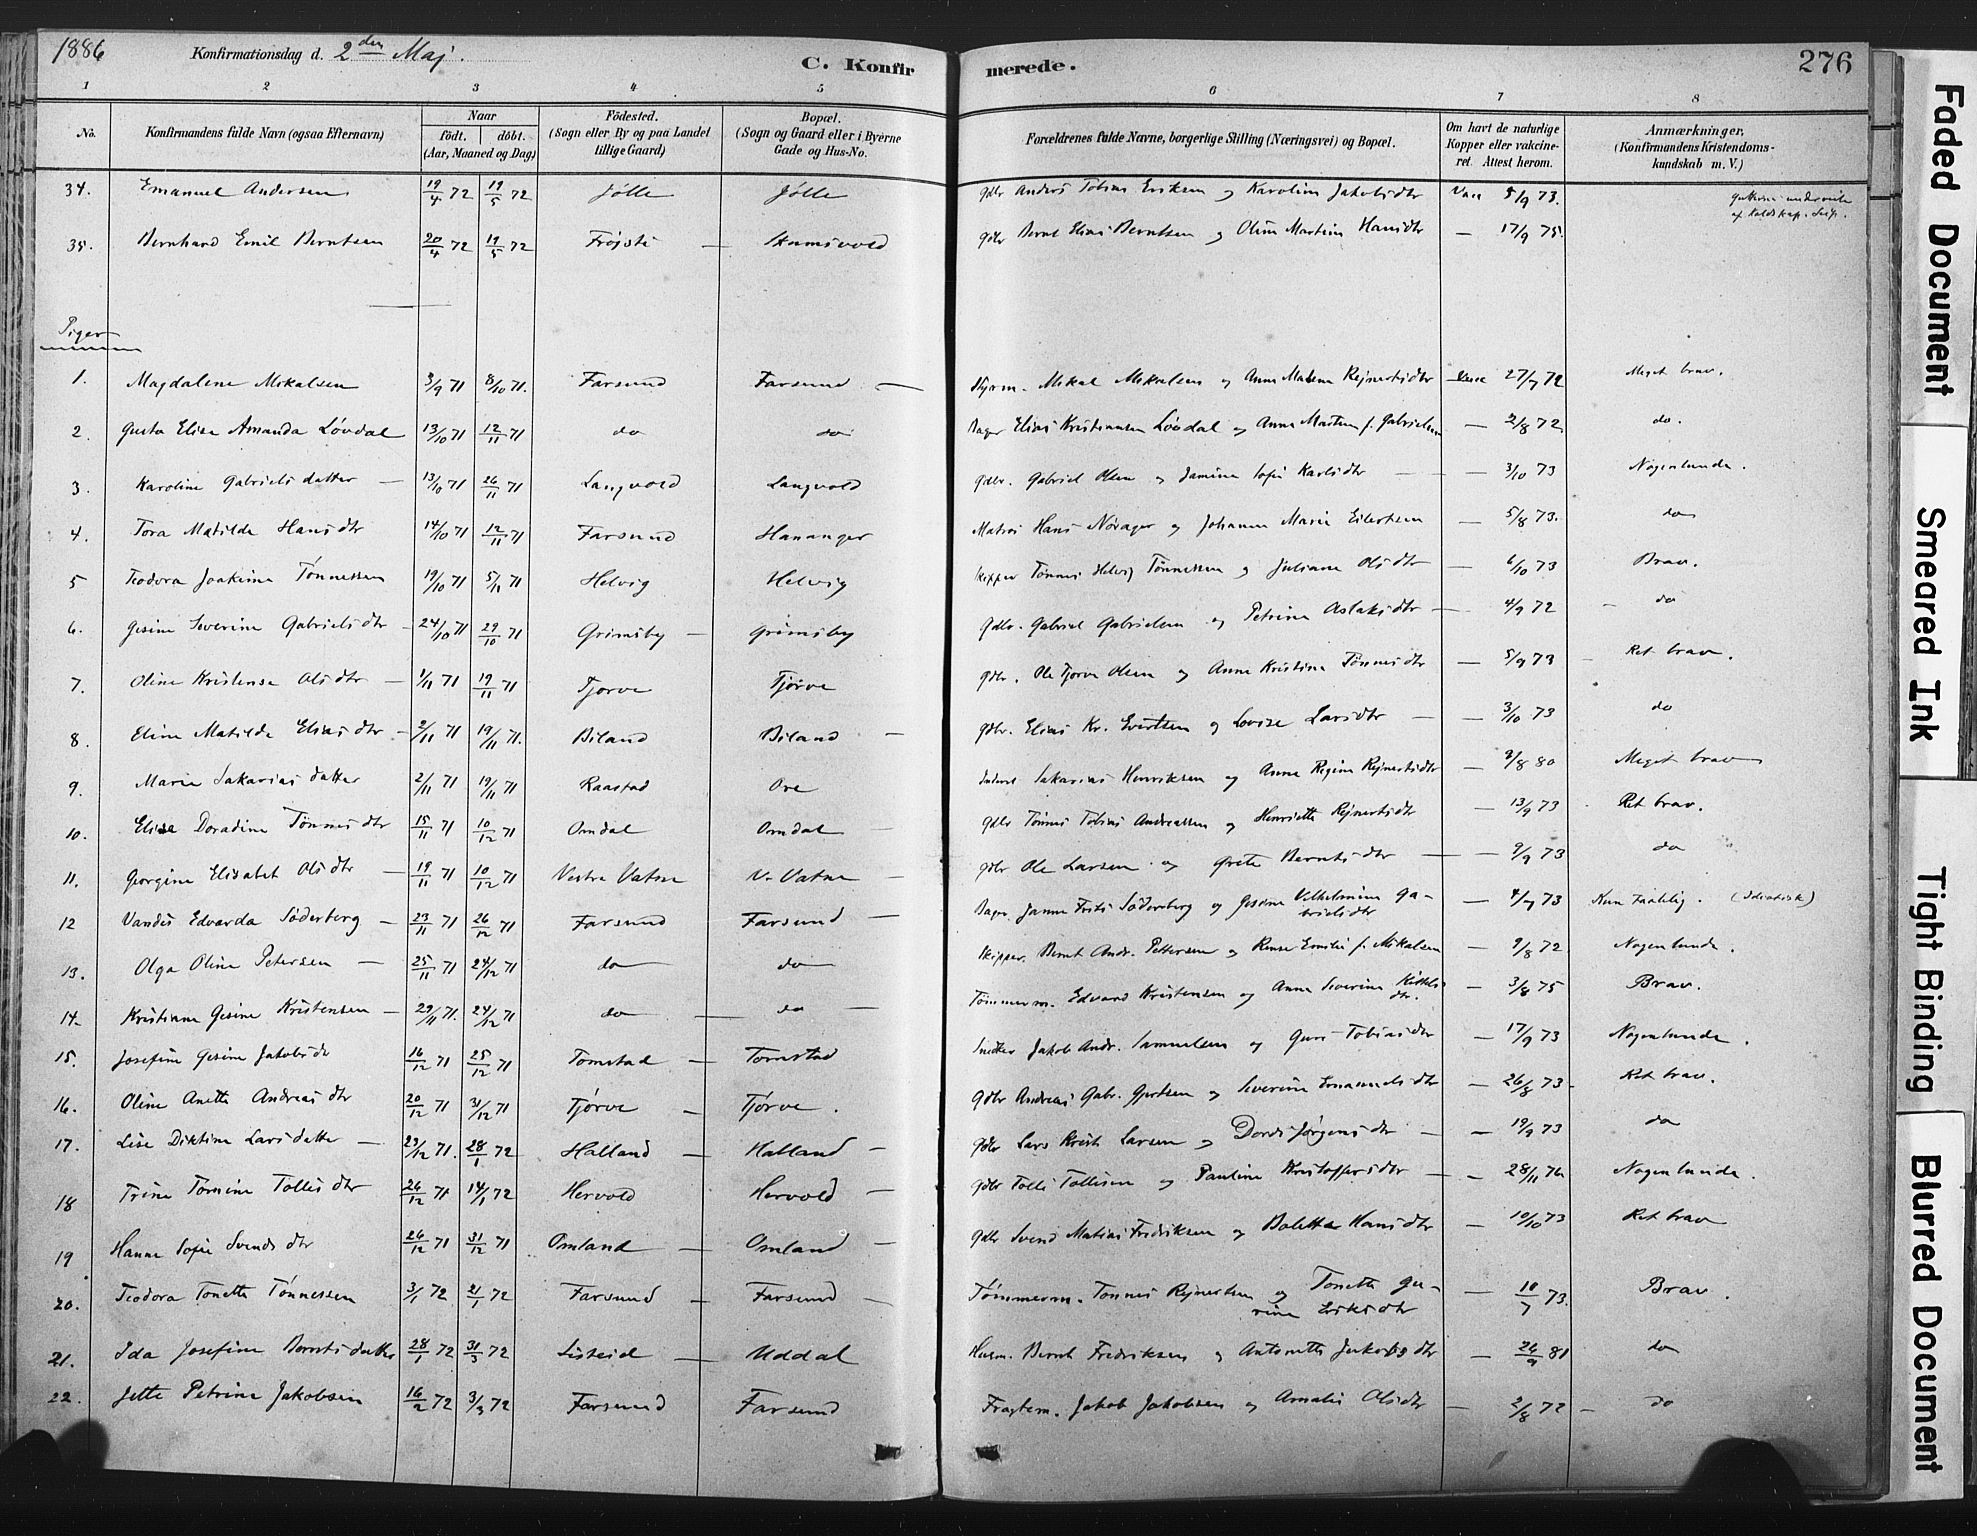 1886 Konfirmationsdag d. 2den Maj. C. Konfirmerede. 276
1 2 3 4 5 6 7 8
No. Konfirmandens fulde Navn (ogsaa Efternavn) Naar født. døbt. (Aar, Maaned og Dag) Fødested. (Sogn eller By og paa Landet tillige Gaard) Bopæl. (Sogn og Gaard eller i Byerne Gade og Hus-No. Forældrenes fulde Navne, borgerlige Stilling (Næringsvei) og Bopæl. Om havt de naturlige Kopper eller vaccineret. Attest herom. Anmærkninger, (Konfirmandens Kristendomskundskab m. V.)
34. Emanuel Andersen 19/4 72 19/5 72 Jølle Jølle gdbr Anders Tobias Eriksen og Karoline Jakobsdtr Vacc 5/9 73.
35. Bernhard Emil Berntsen 20/4 72 19/5 72 — gdbr Bernt Elias Berntsen og Oline Martine Hansdtr — 17/9 75.
Piger
1. Magdalene Mikalsen 3/9 71 8/10 71. Farsund Farsund — Styrm. Mikal Mikalsen og Anne Malene Rejnertsdtr Vacc 27/7 72 Meget brav.
2. Gusta Elise Amanda Løvdal 13/10 71 12/11 71 do do Bager Elias Kristiansen Løvdal og Anne Marten f. Gabrielsen — 2/8 72. do.
3. Karoline Gabrielsdatter — 13/10 71 26/11 71 Langvold Langvold gdbr. Gabriel Olsen og Jamine Sofie Karlsdtr — — 3/10 73 Nogenlunde.
4. Tora Matilde Hansdtr 14/10 71 12/11 71 Farsund Hananger Matros Hans Norager og Johanne Marie Eilertsen — 5/8 73. do
5 Teodora Joakime Tønnessen 19/10 71 5/11 71 Helvig Helvig Skipper Tønnes Helvig Tønnessen og Juliane Olsdtr — 6/10 73 Brav.
6. Gesine Severine Gabrielsdtr — 24/10 71 29/10 71 Grimsby — Grimsby gdbr. Gabriel Gabrielsen og Petrine Aslaksdtr — 4/9 72 — do
7. Oline Kristense Olsdtr — 1/11 71 19/11 71 Tjørve Tjørve gdbr. Ole Tjørve Olsen og Anne Kristine Tønnesdtr — 5/9 73 — Ret brav.
8. Eline Matilde Eliasdtr — 2/11 71 19/11 71. Biland Biland — gdbr. Elias Kr. Evertsen og Lovise Larsdtr — — 3/10 73 do
9. Marie Sakariasdatter 2/11 71 19/11 71 Raastad Ore Sakarias Henriksen og Anne Regine Rejnertsdtr — 9/8 80 Meget brav
10. Elise Doradine Tønnesdtr 15/11 71 10/12 71 Omdal Omdal — gdbr Tønnes Tobias Andreassen og Henriette Rejnertsdtr — 13/9 73 Ret brav.
11. Georgine Elisabet Olsdtr — 19/11 71 10/12 71 Vestre Vatne V. Vatne — gdbr Ole Larsen og Grete Berntsdtr — — 9/9 73 do
12 Vandis Edvarda Søderberg — 23/11 71 26/12 71 Farsund Farsund — Bager. Janne Frits Søderberg og Gesine Vilhelmine Gabrielsdtr — 4/7 73 Kun taalelig. (Idiotisk)
13. Olga Oline Petersen — 25/11 71 24/12 71 do do Skipper. Bernt Andr. Pettersen og Emilie f. Mikalsen — 9/8 72 Nogenlunde.
14. Kristiane Gesine Kristensen — 29/11 71. 24/12 71 do — do — Tømmerm. Edvard Kristensen og Anne Severine Kittelsdtr. — 3/8 75 Brav.
15. Josefine Gesine Jakobsdtr 16/12 71 25/12 71 Tomstad — Tomstad Snedker Jakob Andr. Samuelsen og Guro Tobiasdtr — 17/9 73 Nogenlunde.
16. Oline Anette Andreasdtr 20/12 71 31/12 71 Tjørve — Tjørve. gdbr Andreas Gabr. Gjertsen og Severine Emanuelsdtr — 26/8 73 — Ret brav.
17. Lise Diktine Larsdatter — 23/12 71. 28/1 72 Halland — Halland — gdbr Lars Krist. Larsen og Dorde Jørgensdtr — — 19/9 73 do
18 Trine Tomine Tollisdtr 26/12 71 14/1 72 Hervold — Hervold — gdbr Tollis Tollisen og Pauline Kristoffersdtr — — 28/11 76 Nogenlunde.
19 Hanne Sofie Svendsdtr 26/12 71 31/12 71 Omland — Omland — gdbr Svend Matias Fredriksen og Bolette Hansdtr — 10/10 73 Ret brav
20. Teodora Tonette Tønnessen 3/1 72 21/1 72 Farsund — Farsund — Tømmerm. Tønnes Rejnertsen og Tonette Gurine Eriksdtr — 10/7 73. Brav.
21. Ida Josefine Berntsdatter 28/1 72 31/3 72 Listeid — Uddal Husm. Bernt Fredriksen og Antonette Jakobsdtr — 26/9 81 do
22. Jette Petrine Jakobsen 16/2 72 3/3 72 Farsund Farsund Fragtem. Jakob Jakobsen og Amalie Olsdtr — 2/8 72 — do
Faded Document
Smeared Ink
Tight Binding
Blurred Document